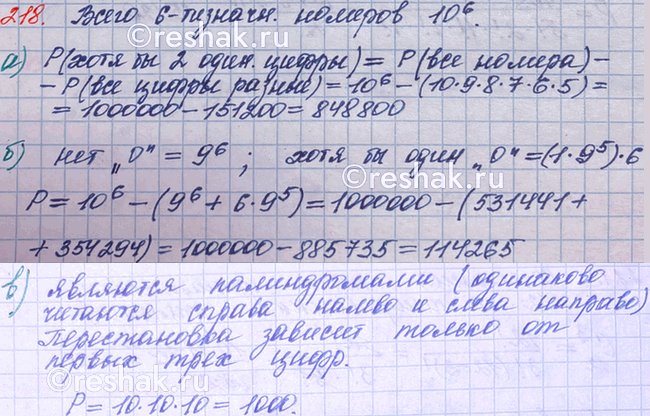 218. Всего 6-тизначн. номеров 10⁶.
а) P(хотя бы 2 один. цифры) = P(все номера) –
– P(все цифры разные) = 10⁶ – (10·9·8·7·6·5) =
= 1000000 – 151200 = 848800
б) нет „0" = 9⁶ ; хотя бы один „0" = (1·9⁵)·6
P = 10⁶ – (9⁶ + 6·9⁵) = 1000000 – (531441 +
+ 354294) = 1000000 – 885735 = 114265
в) являются палиндромами (одинаково
читаются справа налево и слева направо)
Перестановка зависит только от
первых трех цифр.
P = 10·10·10 = 1000.